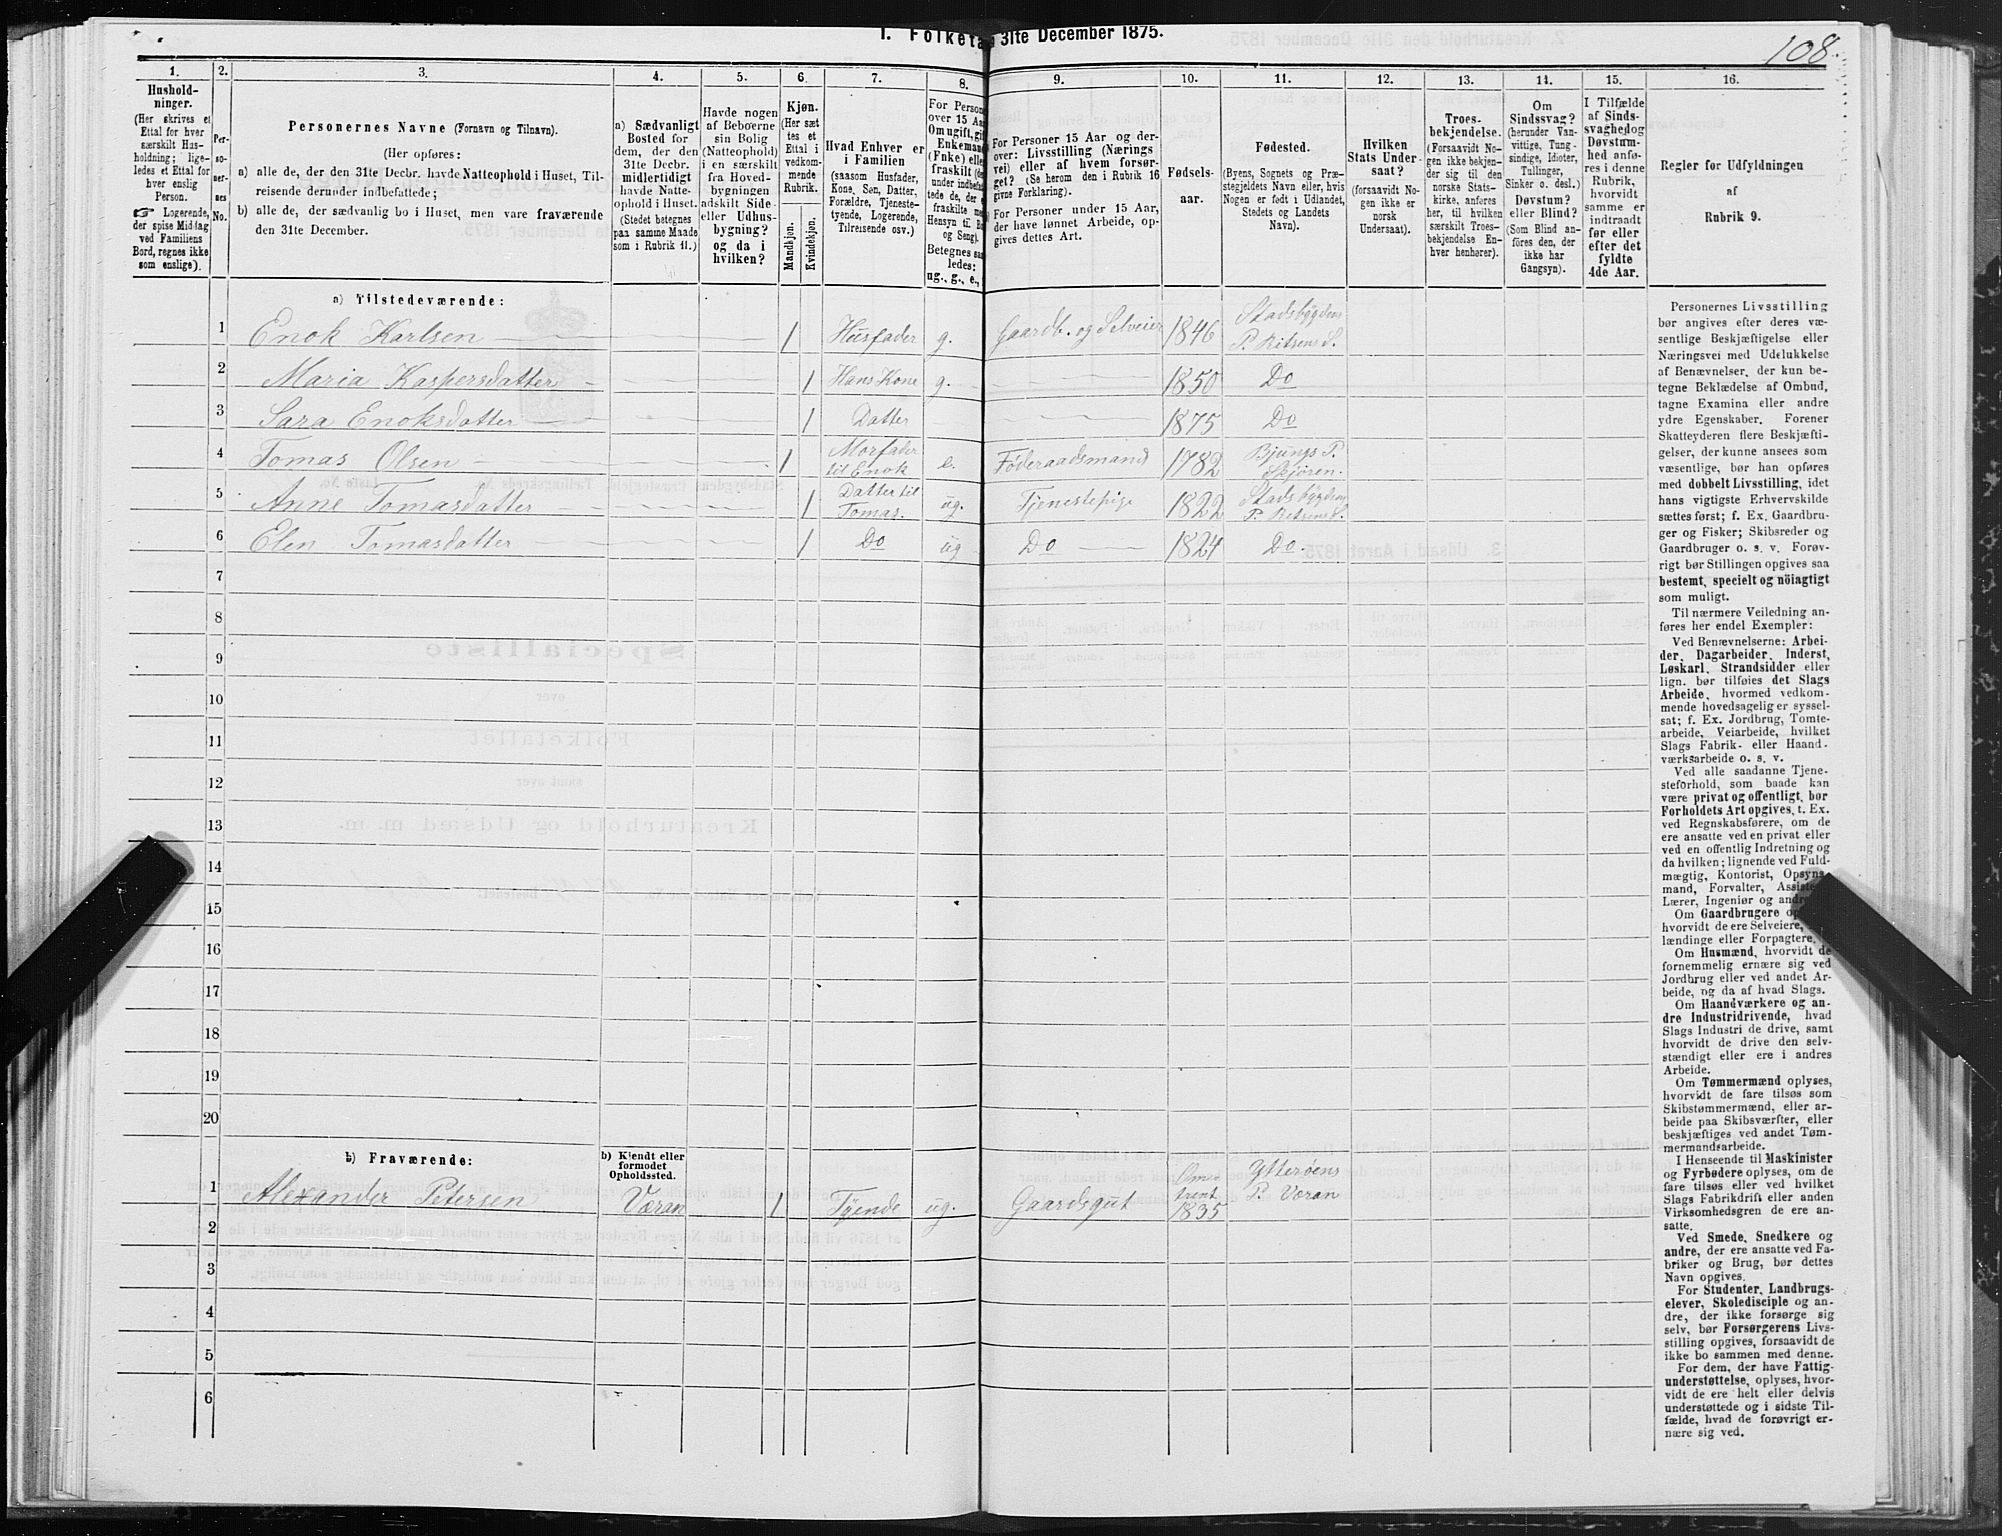 108.
I. Folketal 31te December 1875.
1. 2. 3. 4. 5. 6. 7. 8. 9. 10. 11. 12. 13. 14. 15. 16.
Hushold-
ninger.
(Her skrives et
Ettal for hver
særskilt Hus-
holdning; lige-
ledes et Ettal for
hver enslig
Person.
☞ Logerende,
der spise Middag
ved Familiens
Bord, regnes ikke
som enslige).
Per-
so-
ner-
nes
No.
Personernes Navne (Fornavn og Tilnavn).
(Her opføres:
a) alle de, der den 31te Decbr. havde Natteophold i Huset, Til-
reisende derunder indbefattede;
b) alle de, der sædvanlig bo i Huset, men vare fraværende
den 31te December.
a) Sædvanligt
Bosted for
dem, der den
31te Decbr.
midlertidigt
havde Natte-
ophold i Huset.
(Stedet betegnes
paa samme Maade
som i Rubrik 11.)
Havde nogen
af Beboerne
sin Bolig
(Natteophold)
i en særskilt
fra Hoved-
bygningen
adskilt Side-
eller Udhus-
bygning?
og da i
hvilken?
Kjøn.
(Her sæt
tes et
Ettal i
vedkom-
mende
Rubrik.
Mandkjøn.
Kvindekjøn.
Hvad Enhver er
i Familien
(saasom Husfader,
Kone, Søn, Datter,
Forældre, Tjeneste-
tyende, Logerende,
Tilreisende osv.)
For Person
over 15 Aar
Omugift, gif
Enkemand
(Fnke) elle
fraskilt (de
under indbefa
tede de, der e
fraskilte me
Hensyn til Bo
og Seng).
Betegnes saa
ledes:
ug., g., e.,
For Personer 15 Aar og der-
over: Livsstilling (Nærings
vei) eller af hvem forsør-
get? (Se herom den i Rubrik 16
givne Forklaring).
For Personer under 15 Aar,
der have lønnet Arbeide, op-
gives dettes Art.
Fødsels-
aar.
Fødested.
(Byens, Sognets og Præ-
stegjeldets Navn eller, hvis
Nogen er født i Udlandet,
Stedets og Landets
Navn).
Hvilken
Stats Under-
saat?
(forsaavidt No-
gen ikke er
norsk
Undersaat).
Troes-
bekjendelse.
(Forsaavidt No-
gen ikke bekjen-
der sig til den
norske Stats-
kirke, anføres
her, til hvilken
særskilt Troes-
bekjendelse En-
hver henhører).
Om
Sindssvag?
(herunder Van-
vittige, Tung-
sindige, Idioter,
Tullinger,
Sinker o. desl.)
Døvstum?
eller Blind?
(Som Blind an-
føres den, der
ikke har
Gangsyn).
I Tilfælde
af Sinds-
svaghed og
Døvstum-
hed anfø-
res i denne
Rubrik,
hvorvidt
samme er
indtraadt
før eller
efter det
fyldte
4de Aar.
Regler før Udfyldningen
af
Rubrik 9.
a) Tilstedeværende:
1 Enok Karlsen 1 Husfader g. Gaardb. og Selveier 1846 Stadsbygdens P. Ritsens S.
2 Maria Kaspersdatter 1 Hans Kone g. 1850 Do
3 Sara Enoksdatter 1 Datter 1875 Do
4 Tomas Olsen 1 Morfader til Enok e. Föderaadsmand 1782 Bjungs P. Skjören.
5 Anne Tomasdatter 1 Datter til Tomas. ug. Tjenestepige 1822 Stadsbygdens P. Ritsens S.
6 Elen Tomasdatter 1 Do ug Do 1824 Do.
7
8
9
10
11
12
13
14
15
16
17
18
19
20
b) Fraværende:
b) Kjendt eller
formodet
Opholdssted.
1 Alexander Petersen Væran 1 Tyende ug. Gaardsgut Omtrent 1835 Ytteröens P. Væran
2
3
4
5
6
Personernes Livsstilling
bør angives efter deres væ-
sentlige Beskjæftigelse eller
Næringsvei med Udelukkelse
af Benævnelser, der kun be-
tegne Beklædelse af Ombud,
tagne Examina eller andre
ydre Egenskaber. Forener
Skatteyderen flere Beskjæfti-
gelser, der kunne ansees som
væsentlige, bør han opføres
med dobbelt Livsstilling, idet
hans vigtigste Erhvervskilde
sættes først; f. Ex. Gaardbru-
ger og Fisker; Skibsreder og
Gaardbruger o. s. v. Forøv-
rigt bør Stillingen opgives saa
bestemt, specielt og nöiagtigt
som muligt.
Til nærmere Veiledning an-
føres her endel Exempler:
Ved Benævnelserne: Arbei-
der, Dagarbeider, Inderst,
Løskarl, Strandsidder eller
lign. bør tilføies det Slags
Arbeide, hvormed vedkom-
mende hovedsagelig er syssel-
sat; f. Ex. Jordbrug, Tomte-
arbeide, Veiarbeide, hvilket
Slags Fabrik- eller Haand-
værksarbeide o. s. v.
Ved alle saadanne Tjene-
steforhold, som baade kan
være privat og offentligt, bør
Forholdets Art opgives, t. Ex.
ved Regnskabsførere, om de
ere ansatte ved en privat eller
ved en offentlig Indretning og
da hvilken; lignende ved Fuld-
mægtig, Kontorist, Opsyns-
mand, Forvalter,
Lærer, Ingeniør og
Om Gaardbrugere
hvorvidt de ere Selveiere,
lændinge eller Forpagtere.
Om Husmænd, hvorvidt de
fornemmelig ernære sig ved
Jordbrug eller ved andet Ar-
beide, og da af hvad Slags.
Om Haandværkere og an-
dre Industridrivende, hvad
Slags Industri de drive, samt
hvorvidt de drive den selv-
stændigt eller ere i andres
Arbeide.
Om Tømmermænd oplyses,
hvorvidt de fare tilsøs som
Skibstømmermænd, eller ar-
beide paa Skibsværfter, eller
beskjæftiges ved andet Tøm-
mermandsarbeide.
I Henseende til Maskinister
og Fyrbødere oplyses, om de
fare tilsøs eller ved hvilket
Slags Fabrikdrift eller anden
Virksomhedsgren de ere an-
satte.
Ved Smede, Snedkere og
andre, der ere ansatte ved Fa-
briker og Brug, bør dettes
Navn opgives.
For Studenter, Landbrugs-
elever, Skoledisciple og an-
dre, der ikke forsørge sig
selv, bør Forsørgerens Livs-
stilling opgives, forsaavidt de
ikke bo sammen med denne.
For dem, der have Fattig-
understøttelse, oplyses, hvor-
vidt de ere helt eller delvis
understøttede og i sidste Til-
fælde, hvad de forøvrigt er-
nære sig ved.